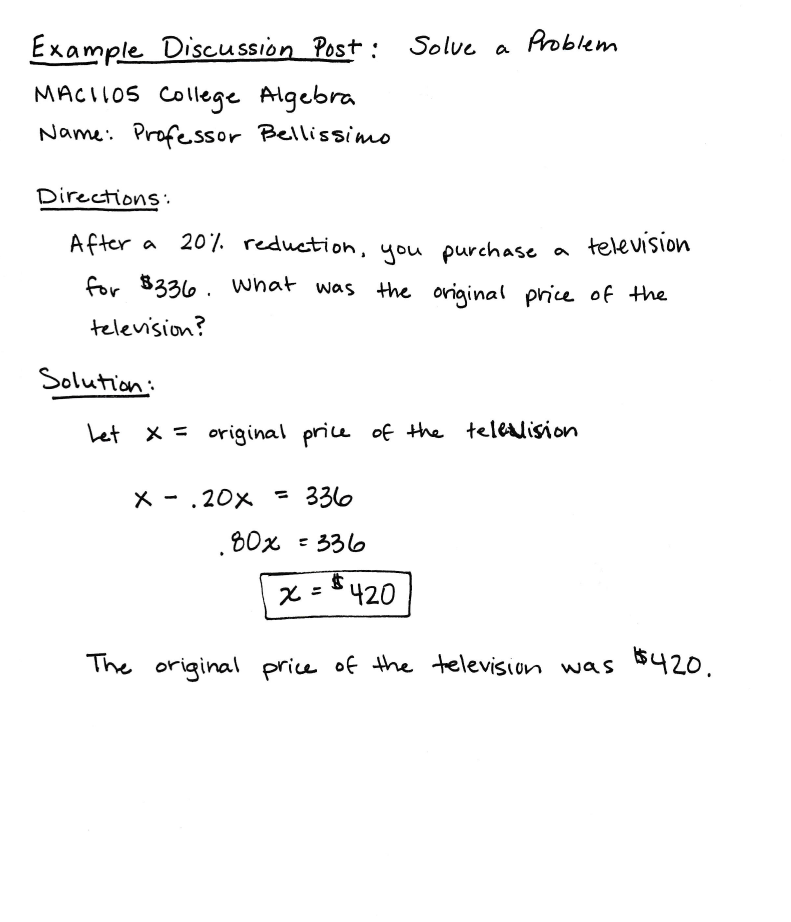 Example Discussion Post: Solve a Problem
MAC1105 College Algebra
Name: Professor Bellissimo
Directions:
After a 20% reduction, you purchase a television
for $336. What was the original price of the
television?
Solution:
Let x = original price of the television
x - .20x = 336
.80x = 336
x = $420
The original price of the television was $420.